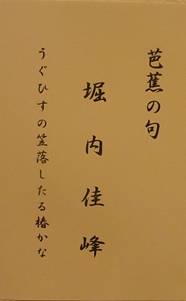 芭蕉の句
堀内佳峰
うぐひすの笠落したる椿かな